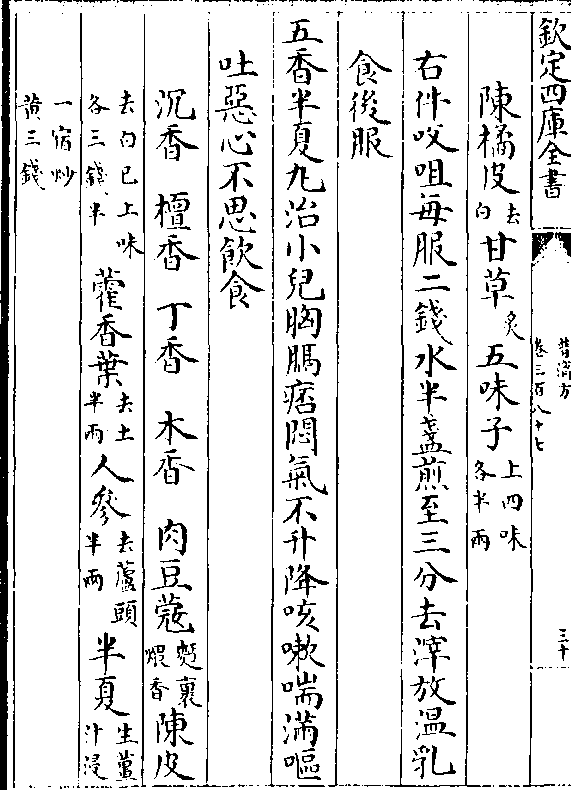 欽定四庫全書
普濟方
卷三百八十七
三十
陳橘皮去白 甘草炙 五味子上四味各半兩
右件㕮咀每服二錢水半盞煎至三分去滓放温乳
食後服
五香半夏丸治小兒胸膈痞悶氣不升降咳嗽喘滿嘔
吐惡心不思飲食
沉香 檀香 丁香 木香 肉豆蔻麫裹煨香 陳皮
去白已上味各三錢半 藿香葉去土半兩 人參去蘆頭半兩 半夏生薑汁浸
一宿炒黄三錢